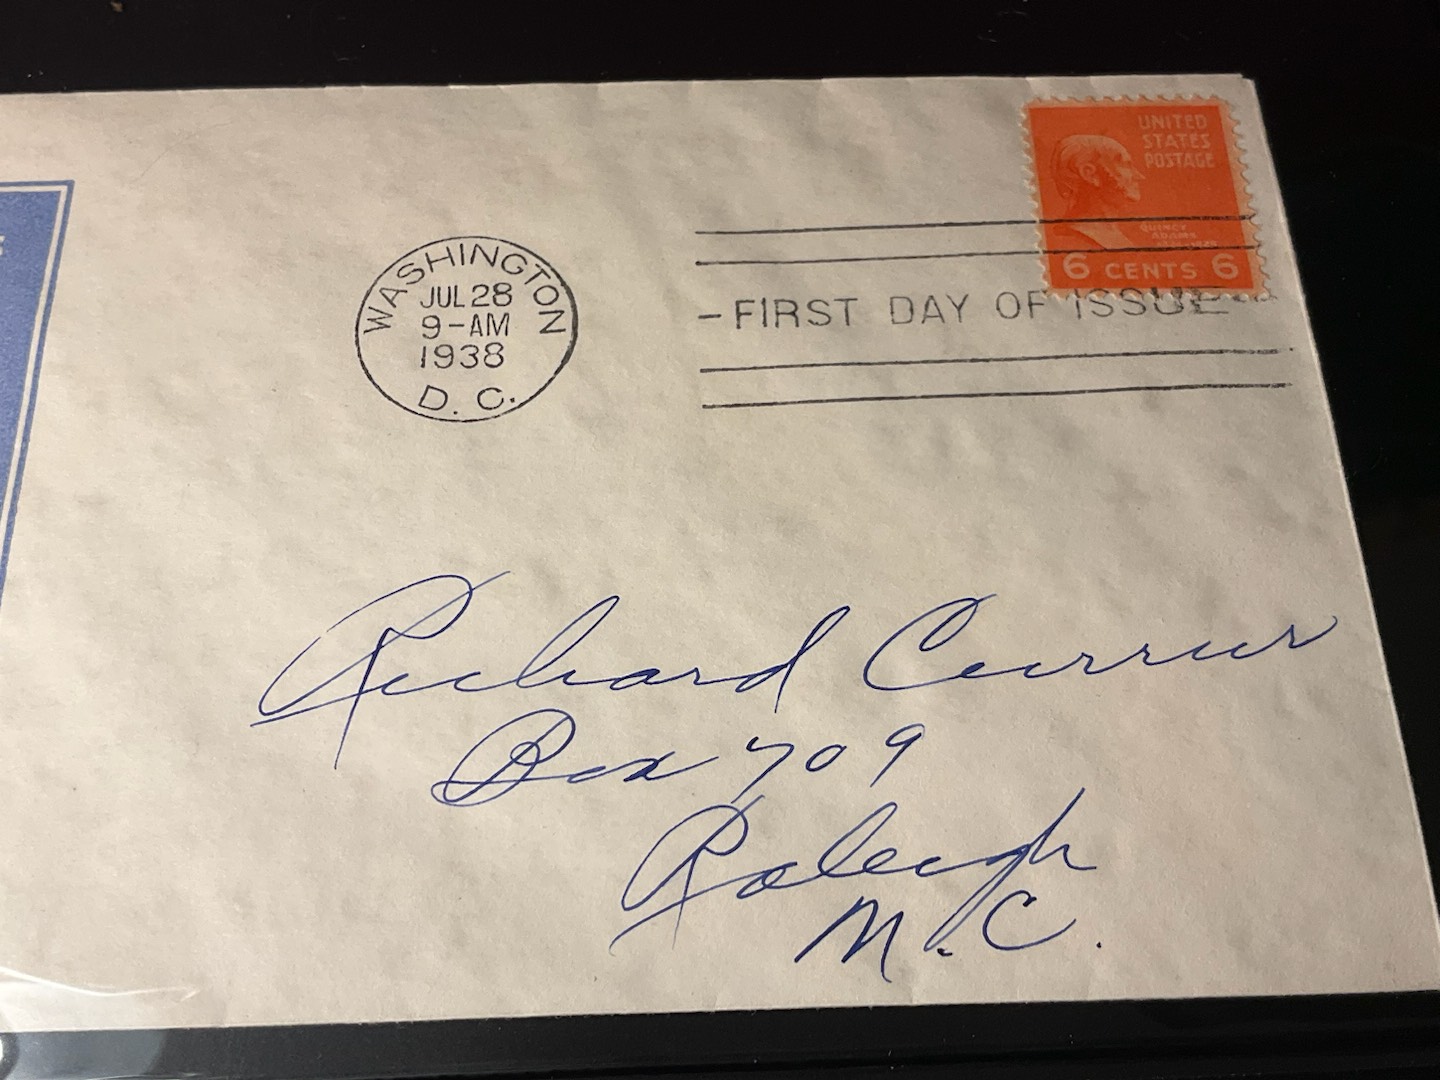 UNITED
STATES
POSTAGE
QUINCY
ADAMS
6 CENTS 6
WASHINGTON
JUL 28
9-AM
1938
D. C.
- FIRST DAY OF ISSUE -
Richard Currur
Box 709
Raleigh
N. C.